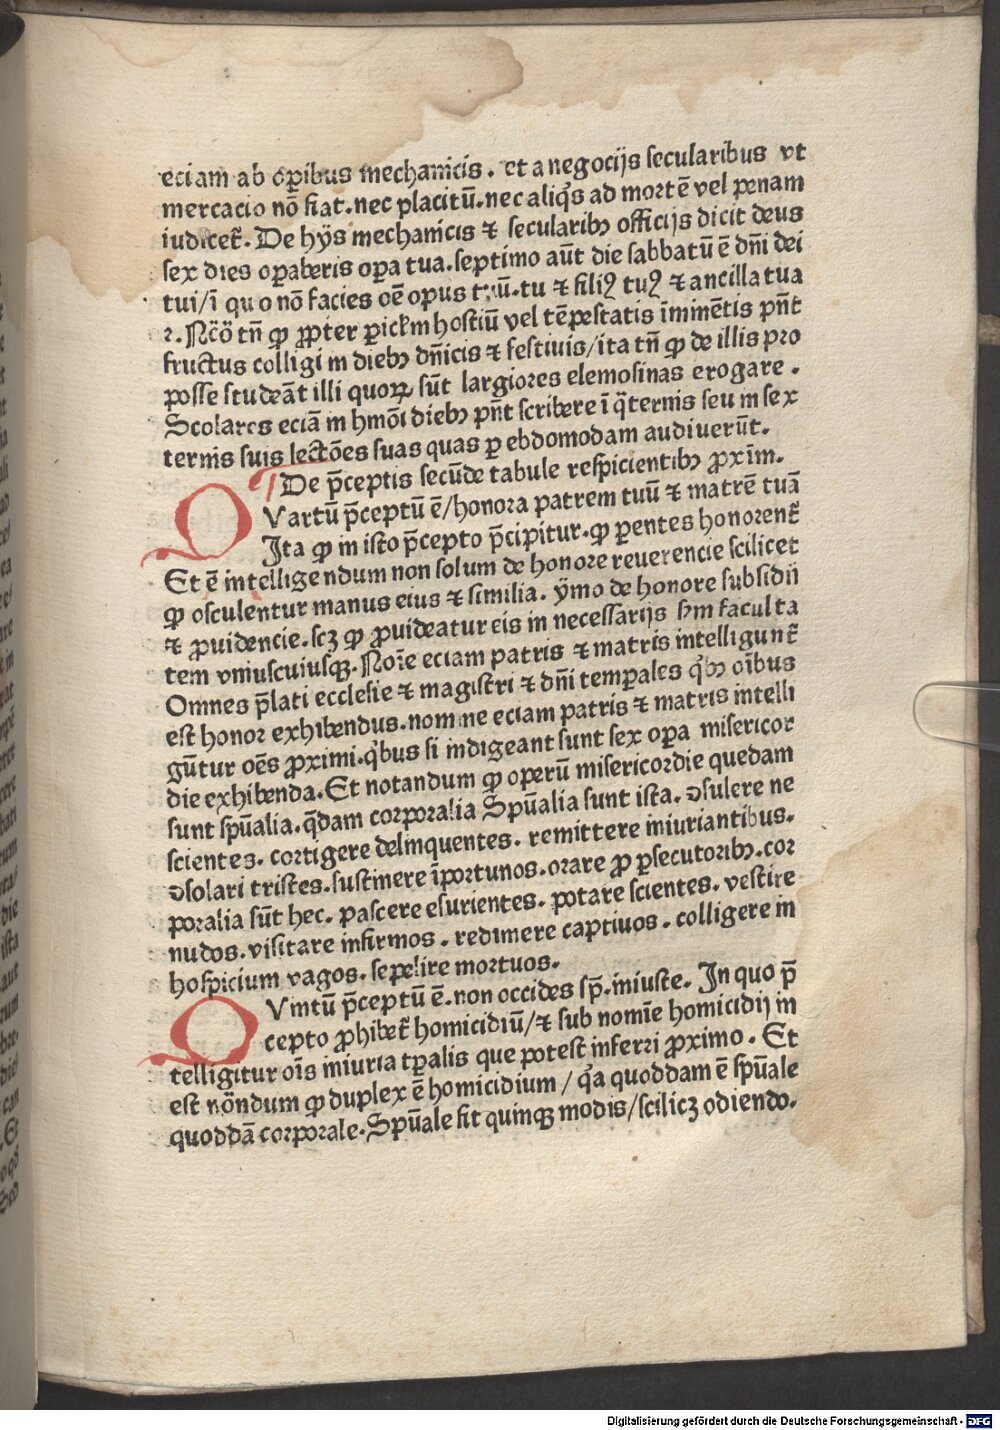 eciam ab oꝑibus mechanicis. et a negocijs secularibus vt
mercacio nō fiat. nec placitū. nec aliqͥs ad mortē vel penam
iudicet̄. De hÿs mechanicis ⁊ secularibꝫ officijs dicit deus
sex dies oꝑaberis oꝑa tua. septimo aūt die sabbatū ē dn̄i dei
tui/ī quo nō facies oē opus tuū. tu ⁊ filiꝰ tuꝰ ⁊ ancilla tua
⁊. Nc̄o tn̄ ꝙ ꝓpter ꝑiclm hostiū vel tēpestatis īminētis pn̄t
fructus colligi in diebꝫ dn̄icis ⁊ festiuis/ita tn̄ ꝙ de illis pro
posse studeāt illi quoꝝ sūt largiores elemosinas erogare.
Scolares eciā in hmōi diebꝫ pn̄t scribere ī qͣternis seu in sex
ternis suis lectōes suas quas ꝑ ebdomodam audiuerūt.
De p̄ceptis secūde tabule respicientibꝫ ꝓxīm.
QVartū p̄ceptū ē/honora patrem tuū ⁊ matrē tuā
Ita ꝙ in isto p̄cepto p̄cipitur. ꝙ ꝑentes honorent̄
Et ē intelligendum non solum de honore reuerencie scilicet
ꝙ osculentur manus eius ⁊ similia. ÿmo de honore subsidij
⁊ ꝓuidencie. scꝫ ꝙ ꝓuideatur eis in necessarijs sm faculta
tem vniuscuiusqꝫ. Noīe eciam patris ⁊ matris intelligunt̄
Omnes p̄lati ecclesie ⁊ magistri ⁊ dn̄i temꝑales qͥbꝫ oībus
est honor exhibendus. nomine eciam patris ⁊ matris intelli
gūtur oēs ꝓximi. qͥbus si indigeant sunt sex oꝑa misericor
die exhibenda. Et notandum ꝙ operū misericordie quedam
sunt spūalia. qͣdam corporalia Spūalia sunt ista. ↄsulere ne
scientes. corrigere delinquentes. remittere iniuriantibus.
ↄsolari tristes. sustinere īportunos. orare ꝓ ꝑsecutoribꝫ. cor
poralia sūt hec. pascere esurientes. potare scientes. vestire
nudos. visitare infirmos. redimere captiuos. colligere in
hospicium vagos. sepelire mortuos.
QVintū p̄ceptū ē. non occides sp̄. iniuste. In quo p̄
cepto ꝓhibet̄ homicidiū/⁊ sub nomīe homicidij in
telligitur oīs iniuria tꝑalis que potest inferri ꝓximo. Et
est nōndum ꝙ duplex ē homicidium / qͣa quoddam ē spūale
quoddā corporale. Spūale fit quinqꝫ modis/scilicꝫ odiendo.
Digitalisierung gefördert durch die Deutsche Forschungsgemeinschaft - DFG